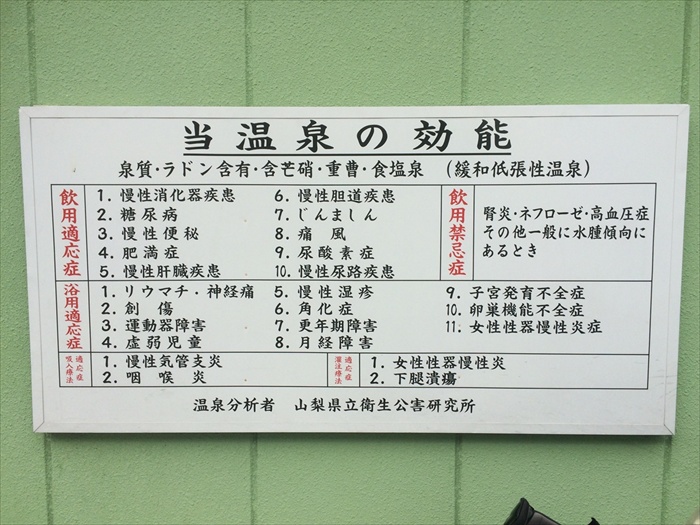 当温泉の効能
泉質・ラドン含有・含芒硝・重曹・食塩泉 (緩和低張性温泉)
飲用適応症
1. 慢性消化器疾患
2. 糖尿病
3. 慢性便秘
4. 肥満症
5. 慢性肝臓疾患
6. 慢性胆道疾患
7. じんましん
8. 痛風
9. 尿酸素症
10. 慢性尿路疾患
飲用禁忌症
腎炎・ネフローゼ・高血圧症
その他一般に水腫傾向に
あるとき
浴用適応症
1. リウマチ・神経痛
2. 創傷
3. 運動器障害
4. 虚弱児童
5. 慢性湿疹
6. 角化症
7. 更年期障害
8. 月経障害
9. 子宮発育不全症
10. 卵巣機能不全症
11. 女性性器慢性炎症
吸入療法
適応症
1. 慢性気管支炎
2. 咽喉炎
灌注療法
適応症
1. 女性性器慢性炎
2. 下腿潰瘍
温泉分析者 山梨県立衛生公害研究所